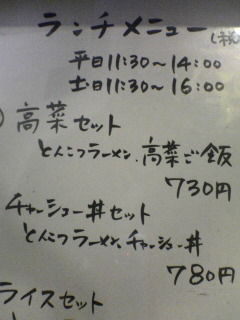 ランチメニュー
(税
平日11:30~14:00
土日11:30~16:00
高菜セット
とんこつラーメン、高菜ご飯
730円
チャーシュー丼セット
とんこつラーメン、チャーシュー丼
780円
ライスセット